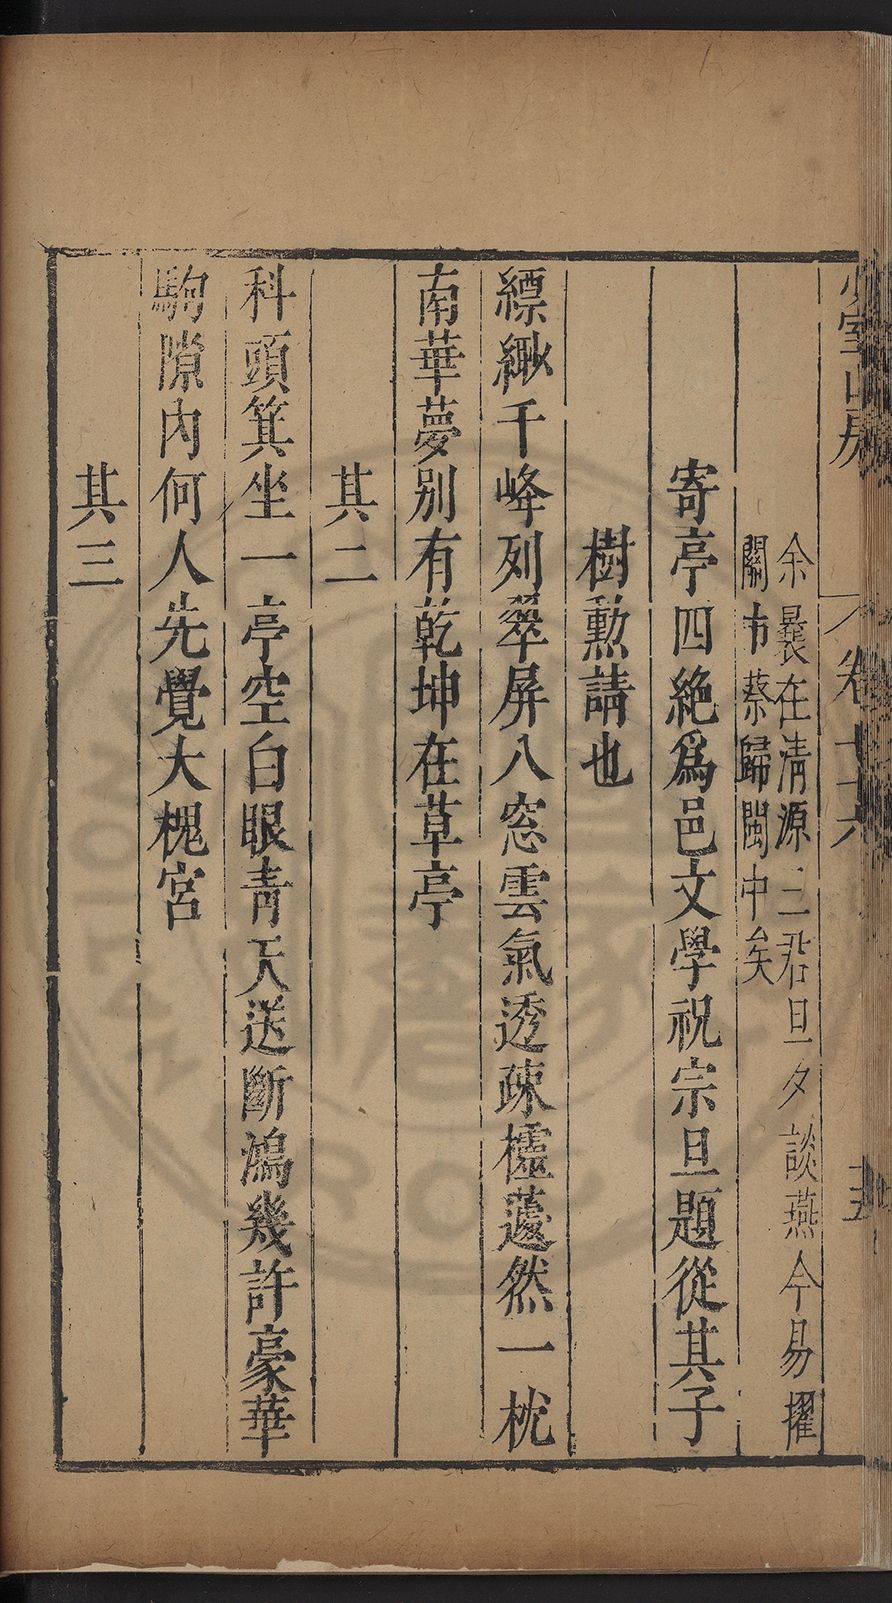 少室山房
卷七十六
十五
余曩在清源三君旦夕談燕今易擢
關中蔡歸閩中矣
寄亭四絕爲邑文學祝宗旦題從其子
樹勲請也
縹緲千峰列翠屏八窓雲氣透疎櫺蘧然一枕
南華夢別有乾坤在草亭
其二
科頭箕坐一亭空白眼青天送斷鴻幾許豪華
駒隙內何人先覺大槐宮
其三